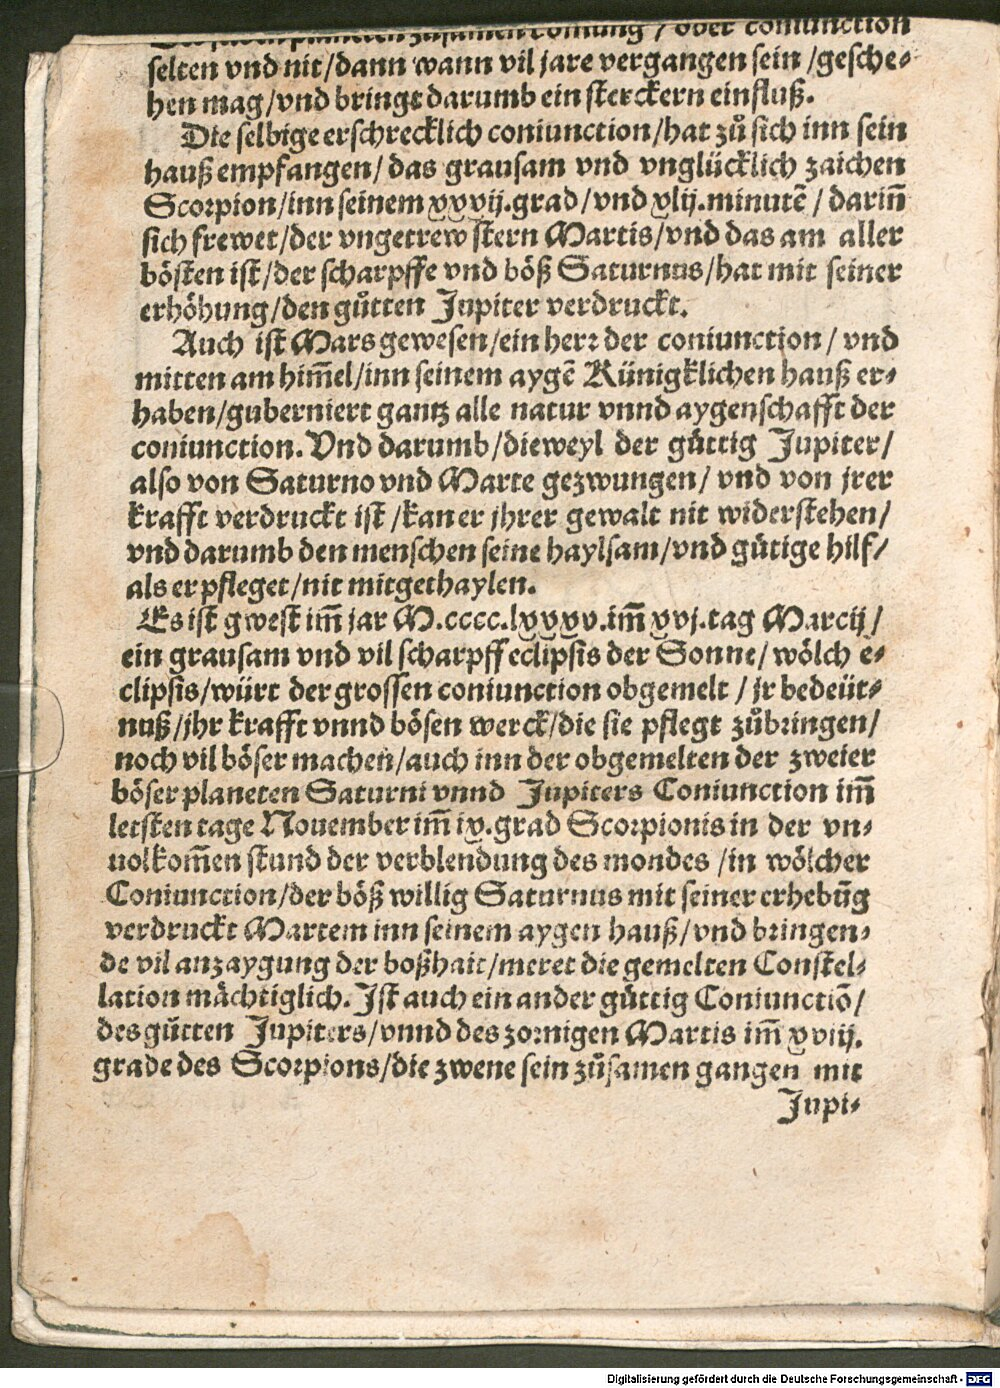 Der sůben planeten zůsamen komung / oder coniunction
selten vnd nit/dann wann vil jare vergangen sein /gesche⸗
hen mag/vnd bringt darumb ein sterckern einfluß.
Die selbige erschrecklich coniunction/hat zů sich inn sein
hauß empfangen/ das grausam vnd vnglücklich zaichen
Scorpion/inn seinem xxvij.grad/vnd xlij.minutē / dariñ
sich frewet/der vngetrew stern Martis/vnd das am aller
bösten ist/der scharpffe vnd böß Saturnus/hat mit seiner
erhöhung/den gůtten Jupiter verdruckt.
Auch ist Mars gewesen/ein herr der coniunction/ vnd
mitten am him̄el/inn seinem aygē Künigklichen hauß er⸗
haben/guberniert gantz alle natur vnnd aygenschafft der
coniunction. Vnd darumb/dieweyl der gůttig Jupiter/
also von Saturno vnd Marte gezwungen/ vnd von jrer
krafft verdruckt ist /kan er jhrer gewalt nit widerstehen/
vnd darumb den menschen seine haylsam/vnd gůtige hilf/
als er pfleget/nit mitgethaylen.
Es ist gwest im̄ jar M.cccc.lxxxv.im̄ xvj.tag Marcij/
ein grausam vnd vil scharpff eclipsis der Sonne/ wölch e⸗
clipsis/würt der grossen coniunction obgemelt / jr bedeüt⸗
nuß/jhr krafft vnnd bösen werck/die sie pflegt zůbringen/
noch vil böser machen/auch inn der obgemelten der zweier
böser planeten Saturni vnnd Jupiters Coniunction im̄
letsten tage Nouember im̄ ix.grad Scorpionis in der vn⸗
uolkom̄en stund der verblendung des mondes /in wölcher
Coniunction/der böß willig Saturnus mit seiner erhebūg
verdruckt Martem inn seinem aygen hauß/vnd bringen⸗
de vil anzaygung der boßhait/meret die gemelten Constel⸗
lation mächtiglich. Ist auch ein ander gůttig Coniunctiō/
des gůtten Jupiters/vnnd des zornigen Martis im̄ xviij.
grade des Scorpions/die zwene sein zůsamen gangen mit
Jupi⸗
Digitalisierung gefördert durch die Deutsche Forschungsgemeinschaft - DFG